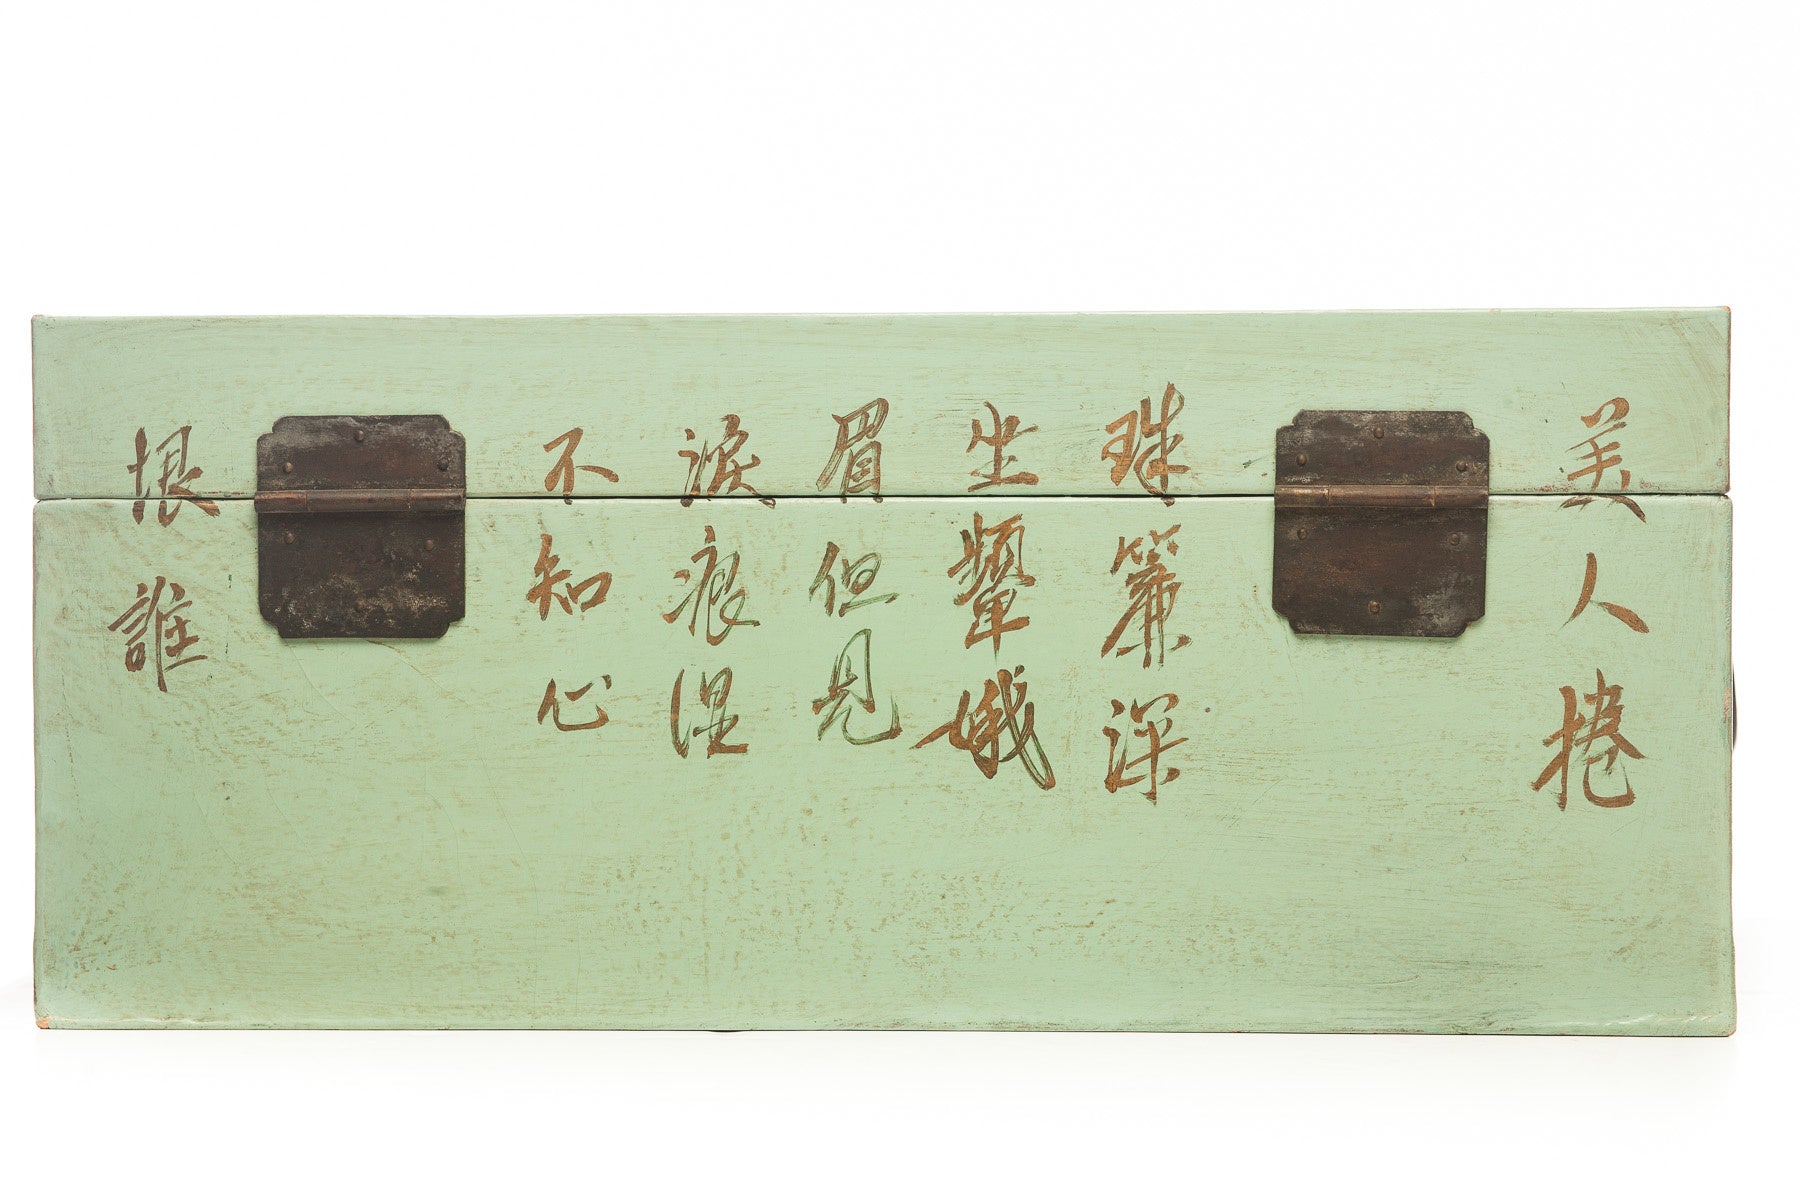 美人捲
珠簾深
坐顰娥
眉但見
淚痕湿
不知心
恨誰